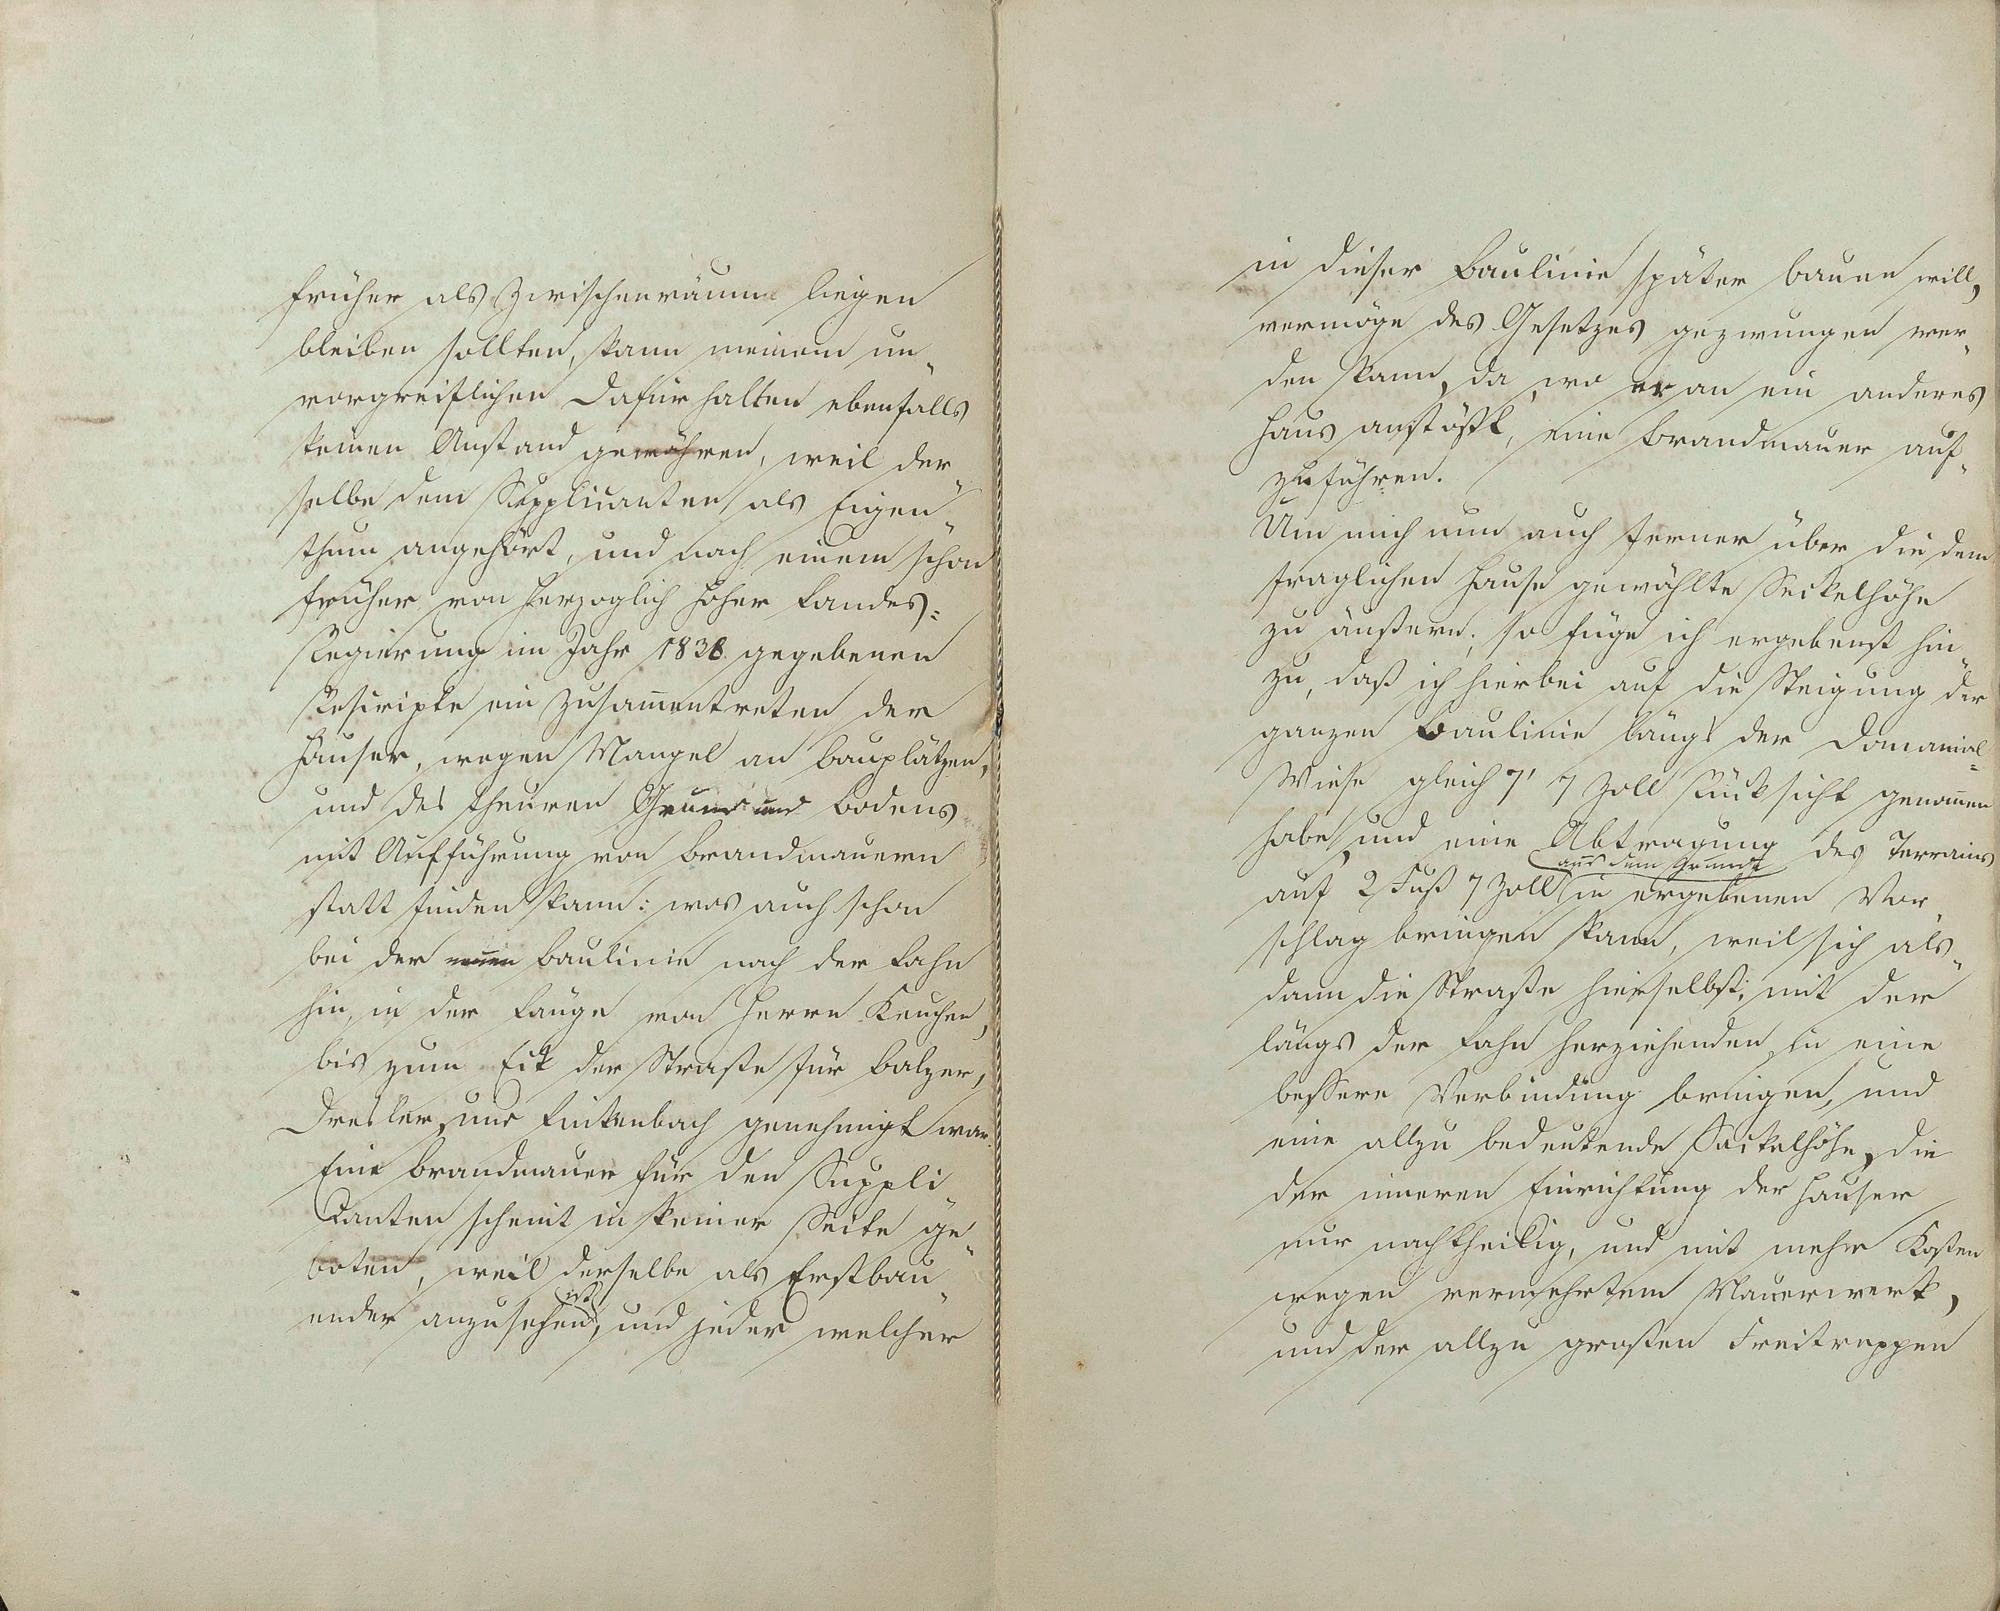 früher als Zwischenräume liegen
bleiben sollten, kann meinem un„
vorgreiflichen Dafürhalten ebenfalls
keinen Anstand gewähren, weil der„
selbe dem Supplicanten als Eigen„
thum angehört, und nach einem schon
früher von Herzoglich Hoher Landes=
Regierung im Jahr 1838 gegebenen
Rescripte ein Zusam̅entreten der
Häuser, wegen Mangel an Bauplätzen,
und des theuren Grund und Bodens
mit Aufführung von Brandmauern
statt finden kann: was auch schon
bei der neuen Baulinie nach der Lahn
hin, in der Länge von Herrn Keuchen,
bis zum Eck der Straße für Balzer,
Dresler, und Finkenbach genehmigt war.
Eine Brandmauer für den Suppli„
kanten scheint in keiner Seite ge„
boten, weil derselbe als Erstbau„
ender anzusehen ist, und jeder welcher
in dieser Baulinie später bauen will,
vermöge des Gesetzes gezwungen wer„
den kann, da, wo er an ein anderes
Haus anstößt, eine Brandmauer auf„
zuführen.
Um mich nun auch ferner über die dem
fraglichen Hause gewählte Sockelhöhe
zu äußern; so füge ich ergebenst hin„
zu, daß ich hierbei auf die Steigung der
ganzen Baulinie längs der Domanial=
Wiese gleich 7' 7 Zoll Rücksicht genom̅en
habe, und eine Abtragung des Terrains
aus dem Grunde
auf 2 Fuß 7 Zoll in ergebenen Vor„
schlag bringen kann, weil sich als„
dann die Straße hierselbst, mit der
längs der Lahn herziehenden in eine
bessere Verbindung bringen, und
eine allzu bedeutende Sockelhöhe, die
der inneren Einrichtung der Häuser
nur nachtheilig, und mit mehr Kosten
wegen vermehrtem Mauerwerk,
und der allzu großen Freitreppen